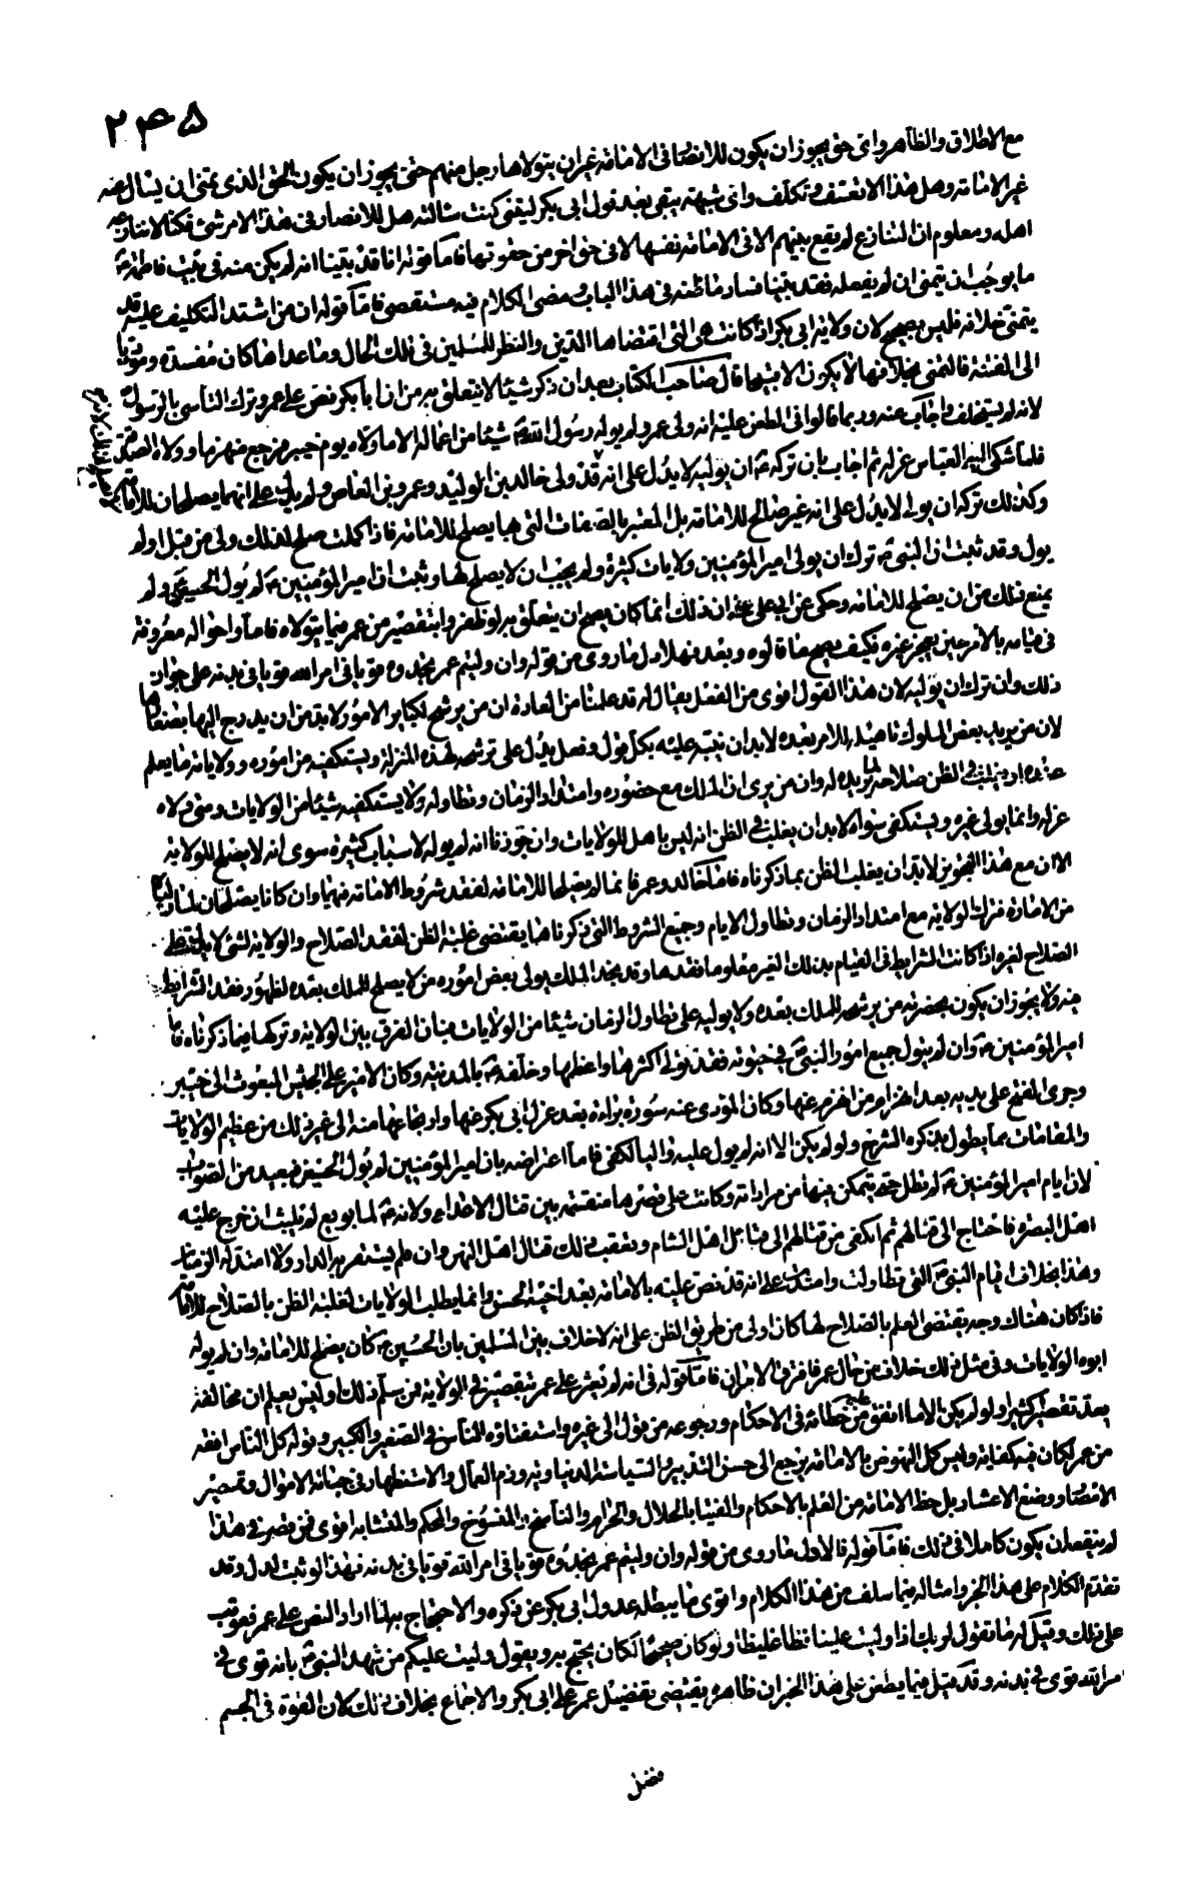 ٢٣٥
مع الاطلاق والظاهر واى حق يجوز ان يكون للانصار فى الامامة غير ان يتولاها رجل منهم حتى يجوز ان يكون الحق الذى تمنى ان يسال عنه
غير الامامة وهل هذا الا تعسف وتكلف واى شبهة تبقى بعد قول ابى بكر ليتنى كنت سالته هل للانصار فى هذا الامر شئ فكنا لا ننازعه
اهله ومعلوم ان التنازع لم يقع بينهم الا فى الامامة نفسها لا فى حق اخر من حقوقها فاما قوله انا قد بينا انه لم يكن منه فى بيت فاطمة
ما يوجب ان يتمنى ان لم يفعله فقد بينا فساد ما ظنه فى هذا الباب ومضى الكلام فيه مستقصى فاما قوله ان من اشتد التكليف عليه قد
يتمنى خلافه فليس بصحيح لان ولاية ابى بكر اذا كانت هى التى اقتضاها الدين والنظر للمسلمين فى تلك الحال وما عداها كان مفسدة ومؤديا
الى الفتنة فالتمنى بخلافها لا يكون الا قبيحا قال صاحب الكتاب بعد ان ذكر شيئا لا يتعلق به من ان ابا بكر نص على عمر وترك التاسى بالرسول
لانه لم يستخلف واجاب عنه وربما قالوا فى الطعن عليه انه ولى عمر ولم يوله رسول الله شيئا من اعماله الا ما ولاه يوم خيبر فرجع منهزما وولاه الصدقة
فلما شكى اليه العباس عزله ثم اجاب بان تركه ان يوليه لا يدل على انه قد ولى خالد بن الوليد وعمرو بن العاص ولم يدل على انهما يصلحان للامامة
وكذلك تركه ان يولى لا يدل على انه غير صالح للامامة بل المعتبر بالصفات التى بها يصلح للامامة فاذا كملت صلح لذلك ولى من قبل او لم
يول وقد ثبت ان النبى ترك ان يولى امير المؤمنين ولايات كثيرة ولم يجب ان لا يصلح لها وثبت ان امير المؤمنين لم يول الحسين ولم
يمنع ذلك من ان يصلح للامامة وحكى عن ابى على ان ذلك انما كان يصح ان يتعلق به لو ظفروا بتقصير من عمر فيما يتولاه فاما واحواله معروفة
فى قيامه بالامر حين يعجز غيره فكيف يصح ما قالوه وبعد فهلا دل ما روى من قوله وان وليتم عمر تجدوه قويا فى امر الله قويا فى بدنه على جواز
ذلك وان ترك ان يوليه لان هذا القول اقوى من الفعل يقال له قد علمنا من العادة ان من يرشح لكبار الامور لا بد من ان يدرج اليها بصغارها
لان من يريد بعض الملوك تاهيله للامر بعده لا بد ان ينبه عليه بكل قول وفعل يدل على ترشحه لهذه المنزلة ويستكفيه من اموره وولاياته ما يعلم
عنده او يغلب فى الظن صلاحه لما يريده له وان من يرى ان الملك مع حضوره وامتداد الزمان وتطاوله ولا يستكفيه شيئا من الولايات ومتى ولاه
عزله وانما يولى غيره ويستكفى سواه لا بد ان يغلب فى الظن انه ليس باهل للولايات وان جوزنا انه لم يوله لاسباب كثيرة سوى انه لا يصلح للولاية
الا ان مع هذا التجويز لا بد ان يغلب الظن بما ذكرناه فاما خالد وعمرو فانما لم يصلحا للامامة لفقد شروط الامامة فيهما وان كانا يصلحان لما وليا
من الامارة فترك الولاية مع امتداد الزمان وتطاول الايام وجميع الشروط التى ذكرناها يقتضى غلبة الظن لفقد الصلاح والولاية لشئ لا يدل على
الصلاح لغيره اذا كانت الشرايط فى القيام بذلك الغير معلوما فقدها وقد نجد الملك يولى بعض اموره من لا يصلح للملك بعده لظهور فقد الشرايط
فيه ولا يجوز ان يكون بحضرته من يرشحه للملك بعده ولا يوليه على تطاول الزمان شيئا من الولايات فبان الفرق بين الولاية وتركها فيما ذكرناه فاما
امير المؤمنين وان لم يتول جميع امور النبى فى حيوته فقد تولى اكثرها واعظمها وخلفه بالمدينة وكان الامير على الجيش المبعوث الى خيبر
وجرى الفتح على يديه بعد انهزام من انهزم عنها وكان المؤدى عنه سورة براءة بعد عزل ابى بكر عنها وارتجاعها منه الى غير ذلك من عظيم الولايات
والمقامات مما يطول بذكره الشرح ولو لم يكن الا انه لم يول عليه واليا لكفى فاما اعتراضه بان امير المؤمنين لم يول الحسين فبعيد من الصواب
لان ايام امير المؤمنين لم تطل حتى يتمكن فيها من مراداته وكانت على قصرها منقسمة بين قتال الاعداء ولانه لما بويع لم يلبث ان خرج عليه
اهل البصرة فاحتاج الى قتالهم ثم انكفى من قتالهم الى قتال اهل الشام وتعقب ذلك قتال اهل النهروان ولم يستقر به الدار ولا امتد له الزمان
وهذا بخلاف ايام النبى التى تطاولت وامتدت على انه قد نص عليه بالامامة بعد اخيه الحسن وانما يطلب الولايات لغلبة الظن بالصلاح للامامة
فاذا كان هناك وجه يقتضى العلم بالصلاح لها كان اولى من طريق الظن على انه لا خلاف بين المسلمين بان الحسين كان يصلح للامامة وان لم يوله
ابوه الولايات وفى مثل ذلك خلاف من حال عمر فافترق الامران فاما قوله فى انه لم يعثر على عمر بتقصير فى الولاية فمن سلم ذلك او ليس يعلم ان مخالفته
يعد تقصيرا كثيرا ولو لم يكن الا ما اتفق عليه من خطائه فى الاحكام ورجوعه من قول الى غيره واستفتاؤه الناس فى الصغير والكبير وقوله كل الناس افقه
من عمر لكان فيه كفاية وليس كل النهوض بالامامة يرجع الى حسن التدبير والسياسة الدنياوية ورم العمال والاستظهار فى جباية الاموال وتمصير
الامصار ووضع الاعشار بل حظ الامامة من العلم بالاحكام والفتيا بالحلال والحرام والناسخ والمنسوخ والمحكم والمتشابه اقوى فمن قصر فى هذا
لم ينفعه ان يكون كاملا فى ذلك فاما قوله فالاول ما روى من قوله وان وليتم عمر تجدوه قويا فى امر الله قويا فى بدنه فهذا لو ثبت لدل وقد
تقدم الكلام على هذا الخبر وامثاله فيما سلف من هذا الكلام واقوى ما يبطله عدول ابى بكر عن ذكره والاحتجاج به لما اراد النص على عمر فعوتب
على ذلك وقيل له ما تقول لربك اذا وليت علينا فظا غليظا ولو كان صحيحا لكان يحتج به ويقول وليت عليكم من شهد النبى بانه قوى فى
امر الله قوى فى بدنه وقد قيل فيما يطعن على هذا الخبر ان ظاهره يقتضى تفضيل عمر على ابى بكر والاجماع بخلاف ذلك لان القوة فى الجسم
فضل